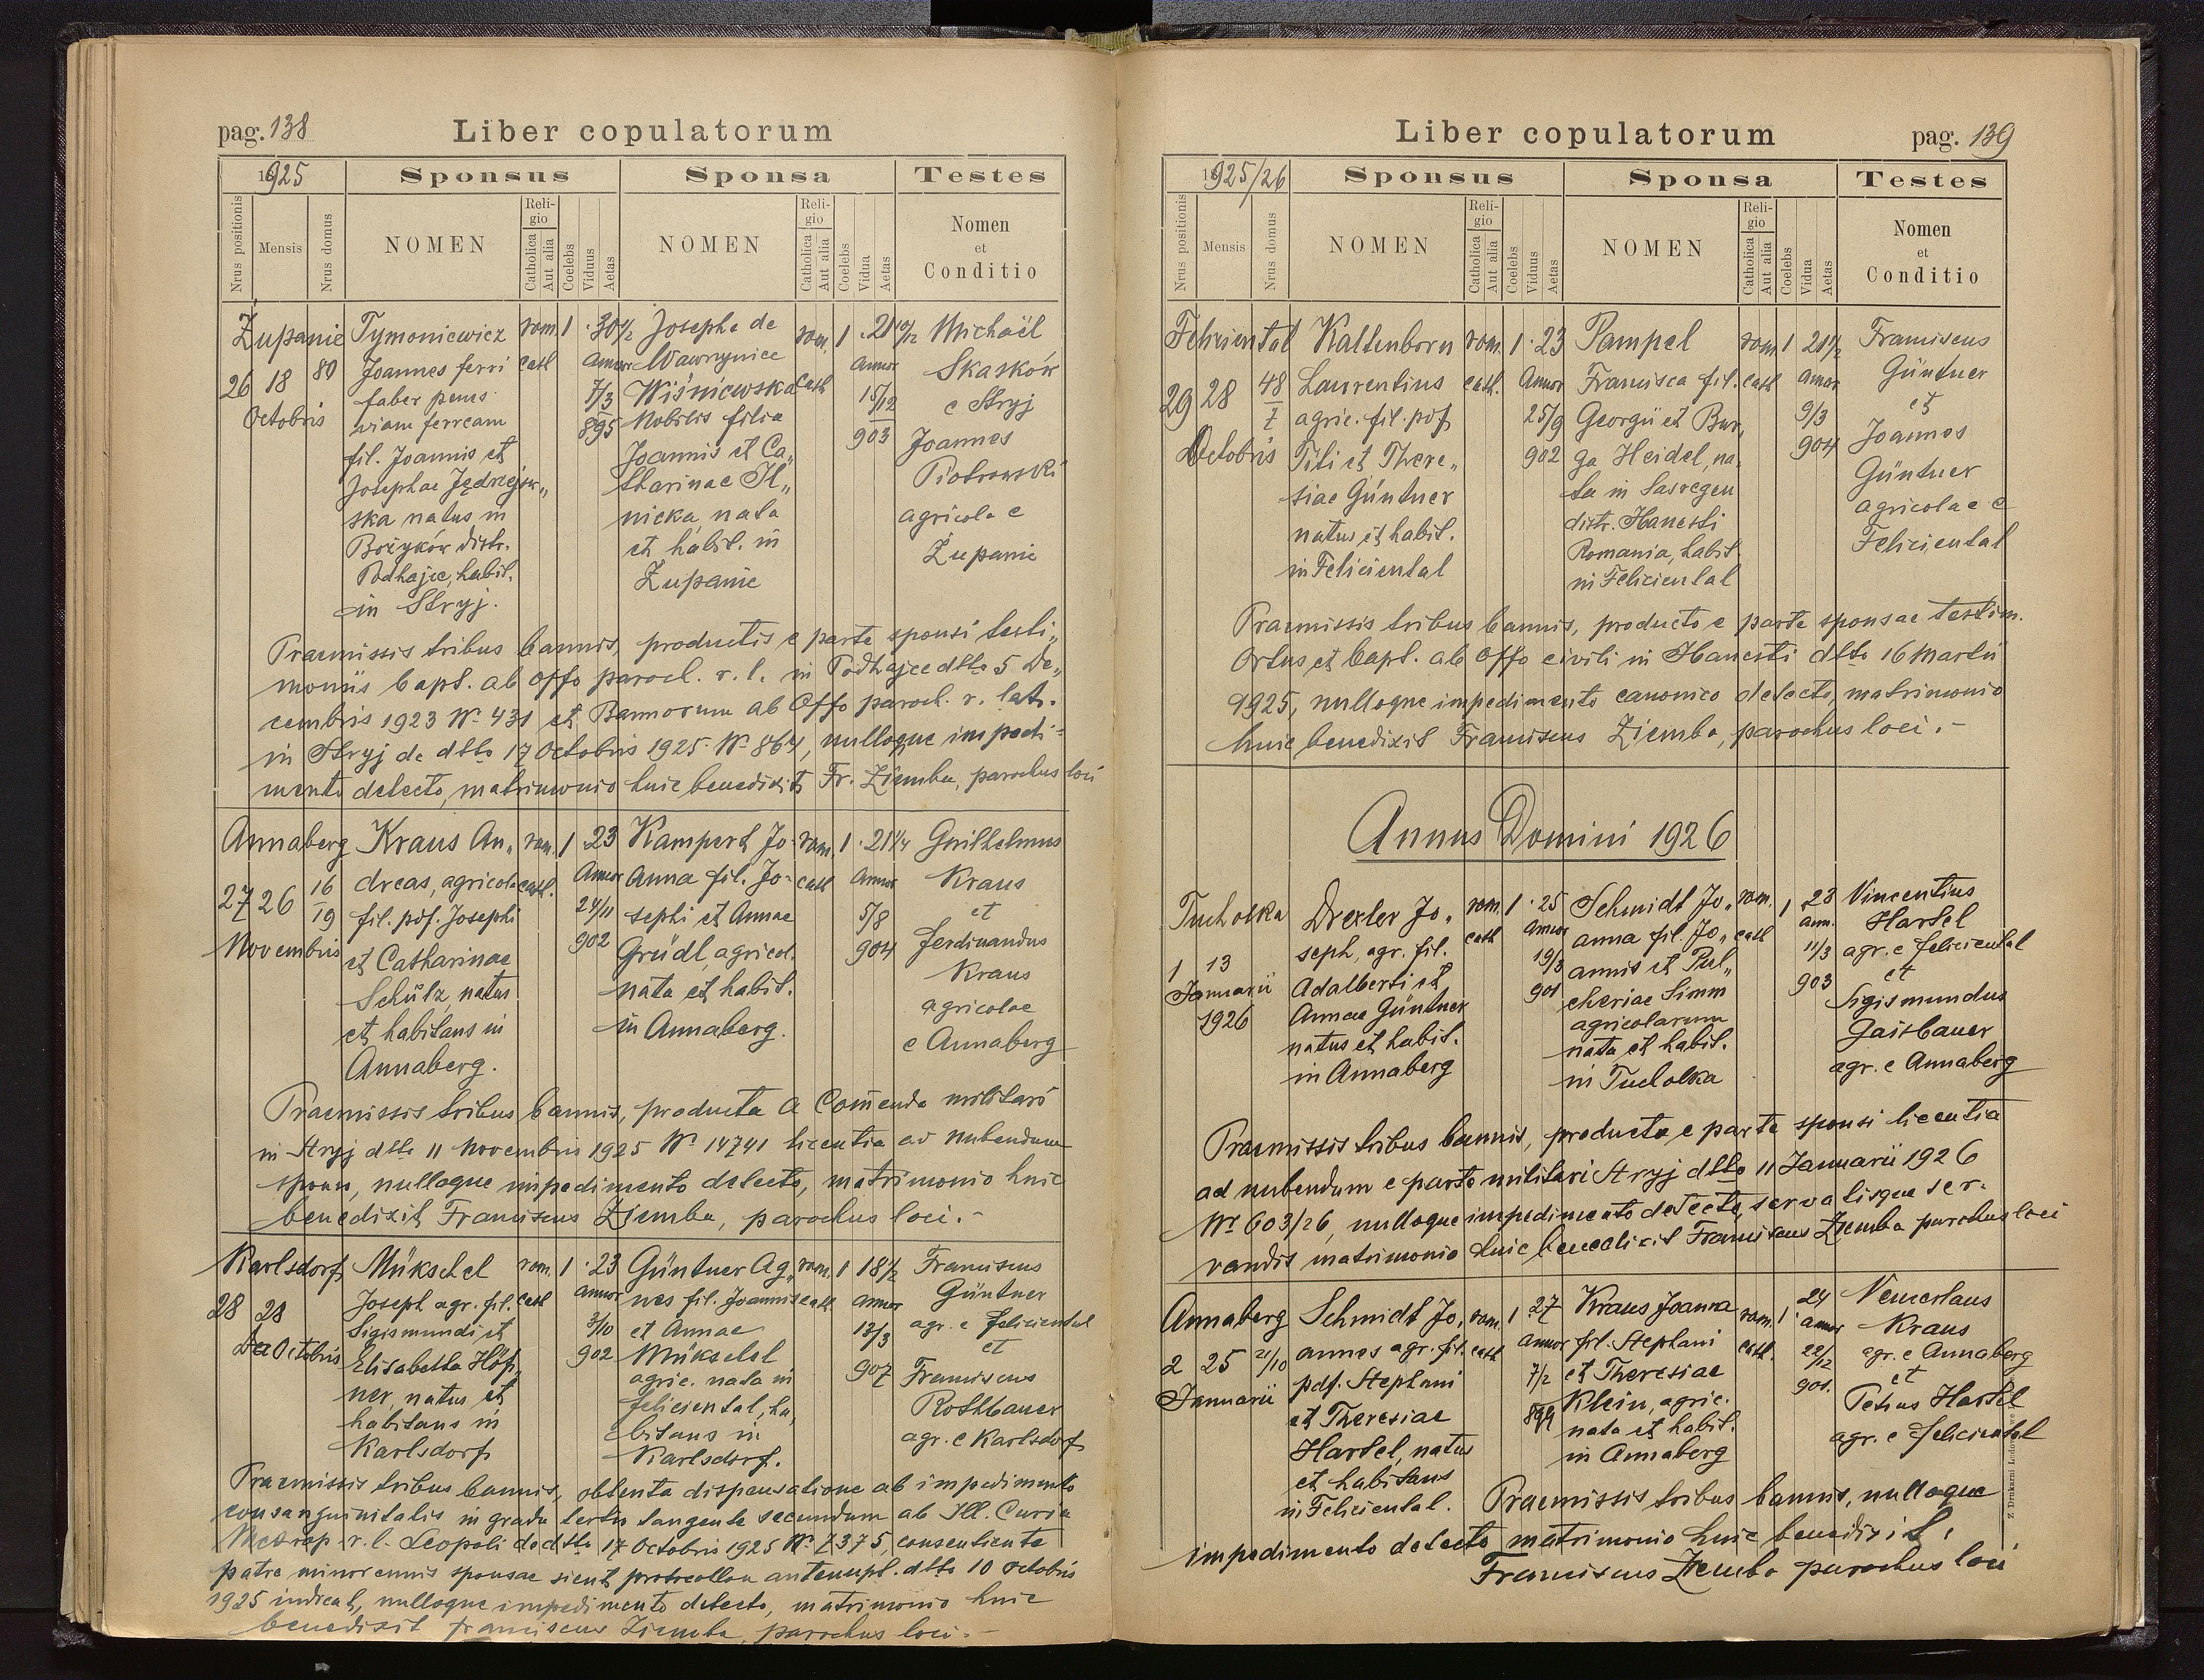 pag. 138
Liber copulatorum
1925
Sponsus
Sponsa
Testes
Nrus positionis
Mensis
Nrus domus
NOMEN
Religio
Catholica
Aut alia
Coelebs
Viduus
Aetas
NOMEN
Religio
Catholica
Aut alia
Coelebs
Vidua
Aetas
Nomen
et
Conditio
Żupanie
26 18
80
Octobris
Tymoniewicz
Joannes ferri
faber penes
viam ferream
fil. Joannis et
Josephae Jędrzejow„
ska natus in
Bożyków distr.
Podhajce, habit.
in Stryj.
rom.
cath
1
30 1/2
annor
7/3
895
Josepha de
Wawrynice
Wiśniewska
Nobilis filia
Joannis et Ca„
tharinae Il„
nicka, nata
et habit. in
Żupanie
rom.
cath
1
21 10/12
annor
15/12
903
Michaël
Skasków
e Stryj
Joannes
Piotrowski
agricola e
Żupanie
Praemissis tribus bannis, productis e parte sponsi testi„
moniis bapt. ab Offo paroch. r. l. in Podhajce dtto 5 De„
cembris 1923 Nº 431 et Bannorum ab Offo paroch. r. lat.
in Stryj de dtto 17 Octobris 1925 Nº 864, nulloque impedi-
mento detecto, matrimonio huic benedixit Fr. Ziemba, parochus loci
Annaberg
27 26
16/19
Novembris
Kraus An„
dreas, agricola
fil. pdf. Josephi
et Catharinae
Schülz, natus
et habitans in
Annaberg.
rom.
cath.
1
23
Annor
24/11
902
Kampert Jo-
anna fil. Jo-
sephi et Annae
Gründl, agricol.
nata et habit.
in Annaberg.
rom.
cath
1
21 1/4
Annor
5/8
904
Guilhelmus
Kraus
et
Ferdinandus
Kraus
agricolae
e Annaberg
Praemissis tribus bannis, producta a Commenda militari
in Stryj dtto 11 Novembris 1925 Nº 14741 licentia ad nubendum
sponso, nulloque impedimento detecto, matrimonio huic
benedixit Franciscus Ziemba, parochus loci.-
Karlsdorf
28 28
Octobris
Mükschel
Joseph agr. fil.
Sigismundi et
Elisabetha Höf„
ner, natus et
habitans in
Karlsdorf
rom.
cath
1
23
annor
3/10
902
Güntner Ag„
nes fil. Joannis
et Annae
Mükschel
agric. nata in
Feliciental, ha„
bitans in
Karlsdorf.
rom.
cath
1
18 1/2
annor
13/3
907
Franciscus
Güntner
agr. e Feliciental
et
Franciscus
Rothbauer
agr. e Karlsdorf
Praemissis tribus bannis, obtenta dispensatione ab impedimento
consanguinitatis in gradu tertio tangente secundum ab Ill. Curia
Metrop. r. l. Leopoli de dtto 17 Octobris 1925 Nº 7375, consentiente
patre minorennis sponsae sicut protocollon antenupt. dtto 10 octobris
1925 indicat, nulloque impedimento detecto, matrimonio huic
benedixit Franciscus Ziemba, parochus loci.-
Liber copulatorum
pag. 139
1925/26
Sponsus
Sponsa
Testes
Nrus positionis
Mensis
Nrus domus
NOMEN
Religio
Catholica
Aut alia
Coelebs
Viduus
Aetas
NOMEN
Religio
Catholica
Aut alia
Coelebs
Vidua
Aetas
Nomen
et
Conditio
Feliciental
29 28
48/7
Octobris
Kaltenborn
Laurentius
agric. fil. pdf
Titi et There„
siae Güntner
natus et habit.
in Feliciental
rom.
cath.
1
23
Annor
25/9
902
Pampel
Francisca fil.
Georgii et Bur„
ga Heidel, na„
ta in Sasregen
distr. Hanesti
Romania, habit
in Feliciental
rom
cath
1
21 1/2
annor
9/3
904
Franciscus
Güntner
et
Joannes
Güntner
agricolae e
Feliciental
Praemissis tribus bannis, producto e parte sponsae testim.
Ortus et bapt. ab Offo civili in Hanesti dtto 16 Martii
1925, nulloque impedimento canonico detecto, matrimonio
huic benedixit Franciscus Ziemba, parochus loci.-
Annus Domini 1926
Tucholka
1 13
Januarii
1926
Drexler Jo„
seph, agr. fil.
Adalberti et
Annae Güntner
natus et habit.
in Annaberg
rom.
cath
1
25
Annor
19/3
901
Schmidt Jo„
anna fil. Jo„
annis et Pul„
cheriae Simm
agricolarum
nata et habit.
in Tucholka
rom.
cath
1
23
ann.
11/3
903
Vincentius
Hartel
agr. e Feliciental
et
Sigismundus
Gaisbauer
agr. e Annaberg
Praemissis tribus bannis, producta e parte sponsi licentia
ad nubendum e parte militari Stryj dtto 11 Januarii 1926
Nº 603/26, nulloque impedimento detecto, servatisque ser-
vandis matrimonio huic benedixit Franciscus Ziemba parochus loci
Annaberg
2 25
21/10
Januarii
Schmidt Jo„
annes agr. fil.
pdf. Stephani
et Theresiae
Hartel, natus
et habitans
in Feliciental.
rom.
cath
1
27
Annor
7/2
899
Kraus Joanna
fil. Stephani
et Theresiae
Klein, agric.
nata et habit.
in Annaberg
rom.
cath.
1
24
annor
22/12
901.
Venceslaus
Kraus
agr. e Annaberg
et
Petrus Hartel
agr. e Feliciental
Praemissis tribus bannis, nulloque
impedimento detecto matrimonio huic benedixit.
Franciscus Ziemba parochus loci